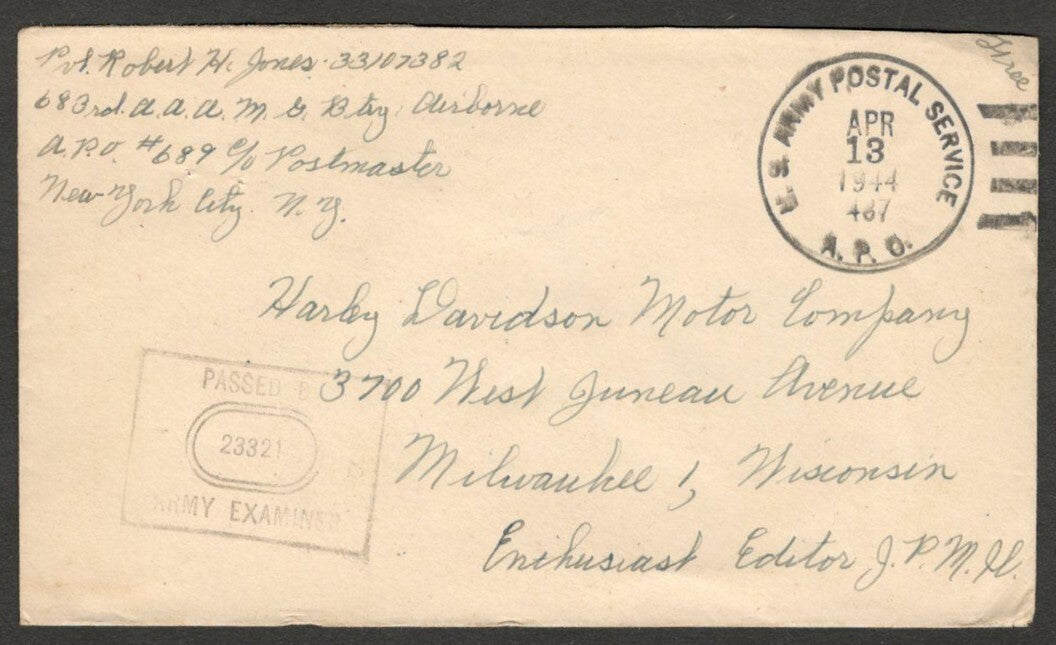 Pvt. Robert H. Jones. 33107382
683rd. A.A.A. M. G. Btry. Airborne
A.P.O. #689 c/o Postmaster
New York City. N.Y.
Free
U.S. ARMY POSTAL SERVICE
APR
13
1944
487
A.P.O.
Harley Davidson Motor Company
3700 West Juneau Avenue
Milwaukee 1, Wisconsin
Enthusiast Editor J.P.M.
PASSED B
23321
ARMY EXAMINER